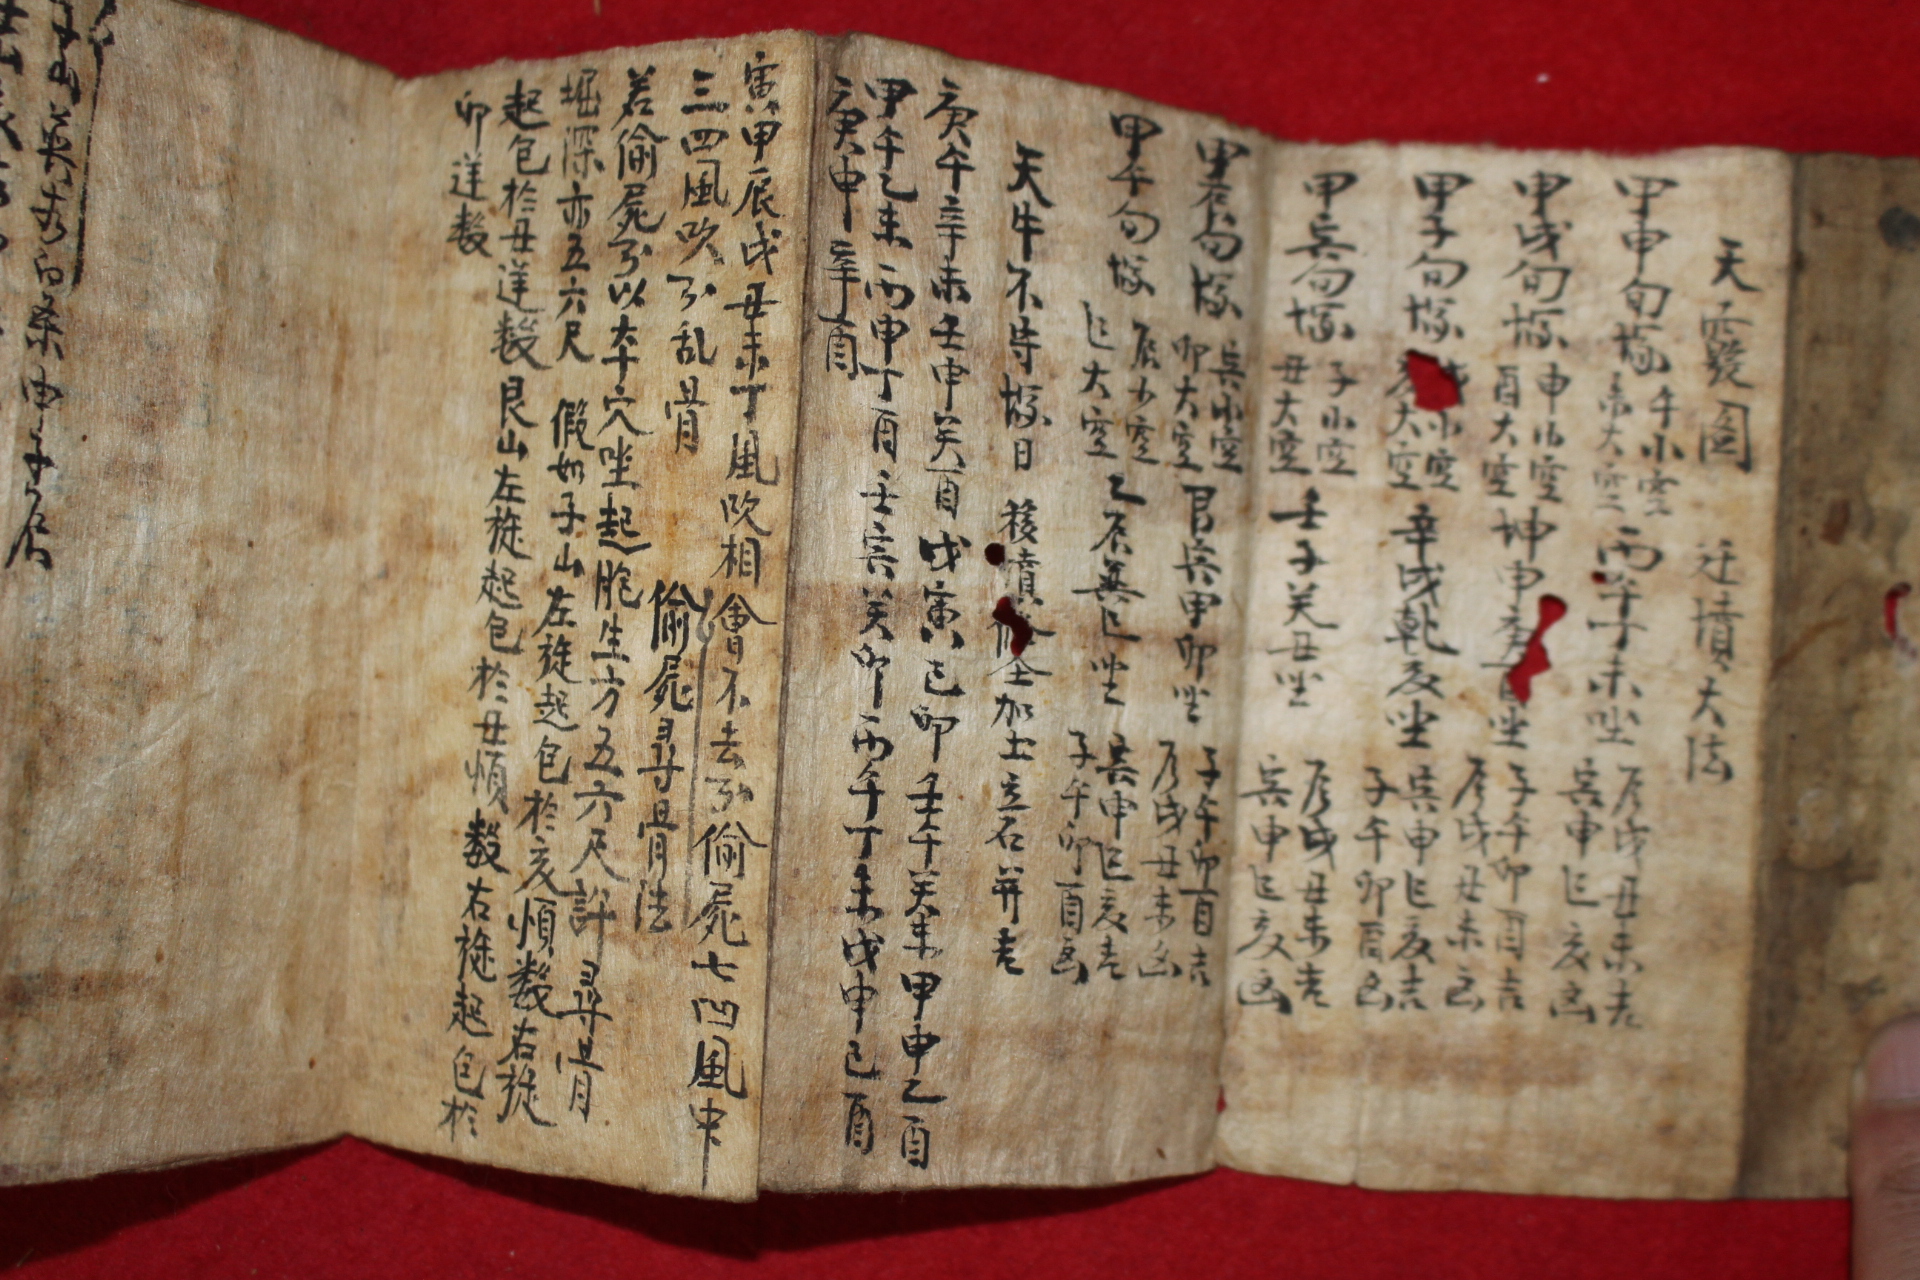 天霞圖 迁墳大法
甲申旬塚 午小空 未大空 丙午丁未坐 辰戌丑未吉 寅申巳亥凶
甲戌旬塚 申小空 酉大空 坤申庚酉坐 子午卯酉吉 辰戌丑未凶
甲子旬塚 小空 大空 辛戌乾亥坐 寅申巳亥吉 子午卯酉凶
甲寅旬塚 子小空 丑大空 壬子癸丑坐 辰戌丑未吉 寅申巳亥凶
甲辰旬塚 寅小空 卯大空 艮寅甲卯坐 子午卯酉吉 辰戌丑未凶
甲午旬塚 辰小空 巳大空 乙辰巽巳坐 寅申巳亥吉 子午卯酉凶
天牛不守塚日 移墳 加土立石并吉
庚午辛未壬申癸酉戊寅己卯壬午癸未甲申乙酉
甲午乙未丙申丁酉壬寅癸卯丙午丁未戊申己酉
庚申辛酉
寅甲辰戌丑未丁風吹相會不去 偷屍七凹風中
三四風吹 乱骨
偷屍尋骨法
若偷屍 以本穴坐起胞生方五六尺許尋骨
堀深亦五六尺 假如子山左旋起包於亥順数右旋
起包於丑逆数艮山左旋起包於丑順数右旋起包於
卯逆数